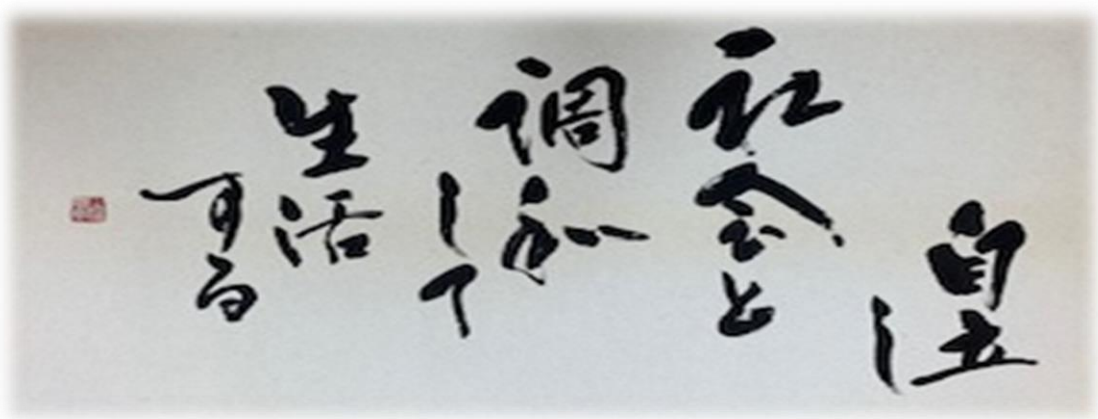 自立し
社会と
調和
して
生活
する